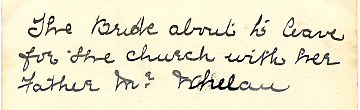 The Bride about to leave
for the church with her
Father Mr Whelan